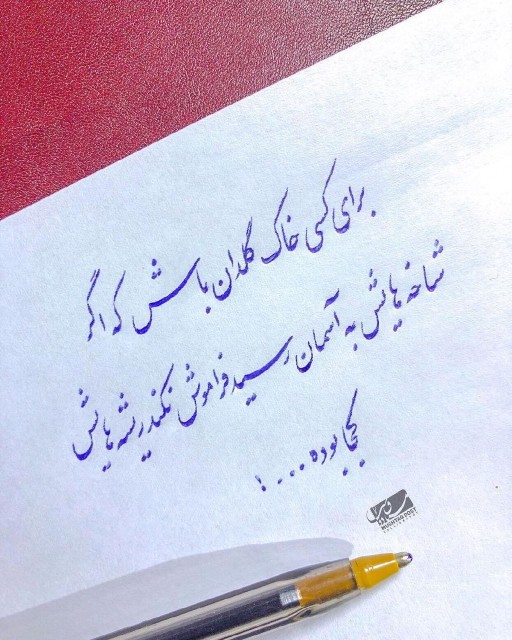 برای کسی خاک گلدان باش که اگر
شاخه هایش به آسمان رسید فراموش نکند ریشه هایش
کجا بوده ...!